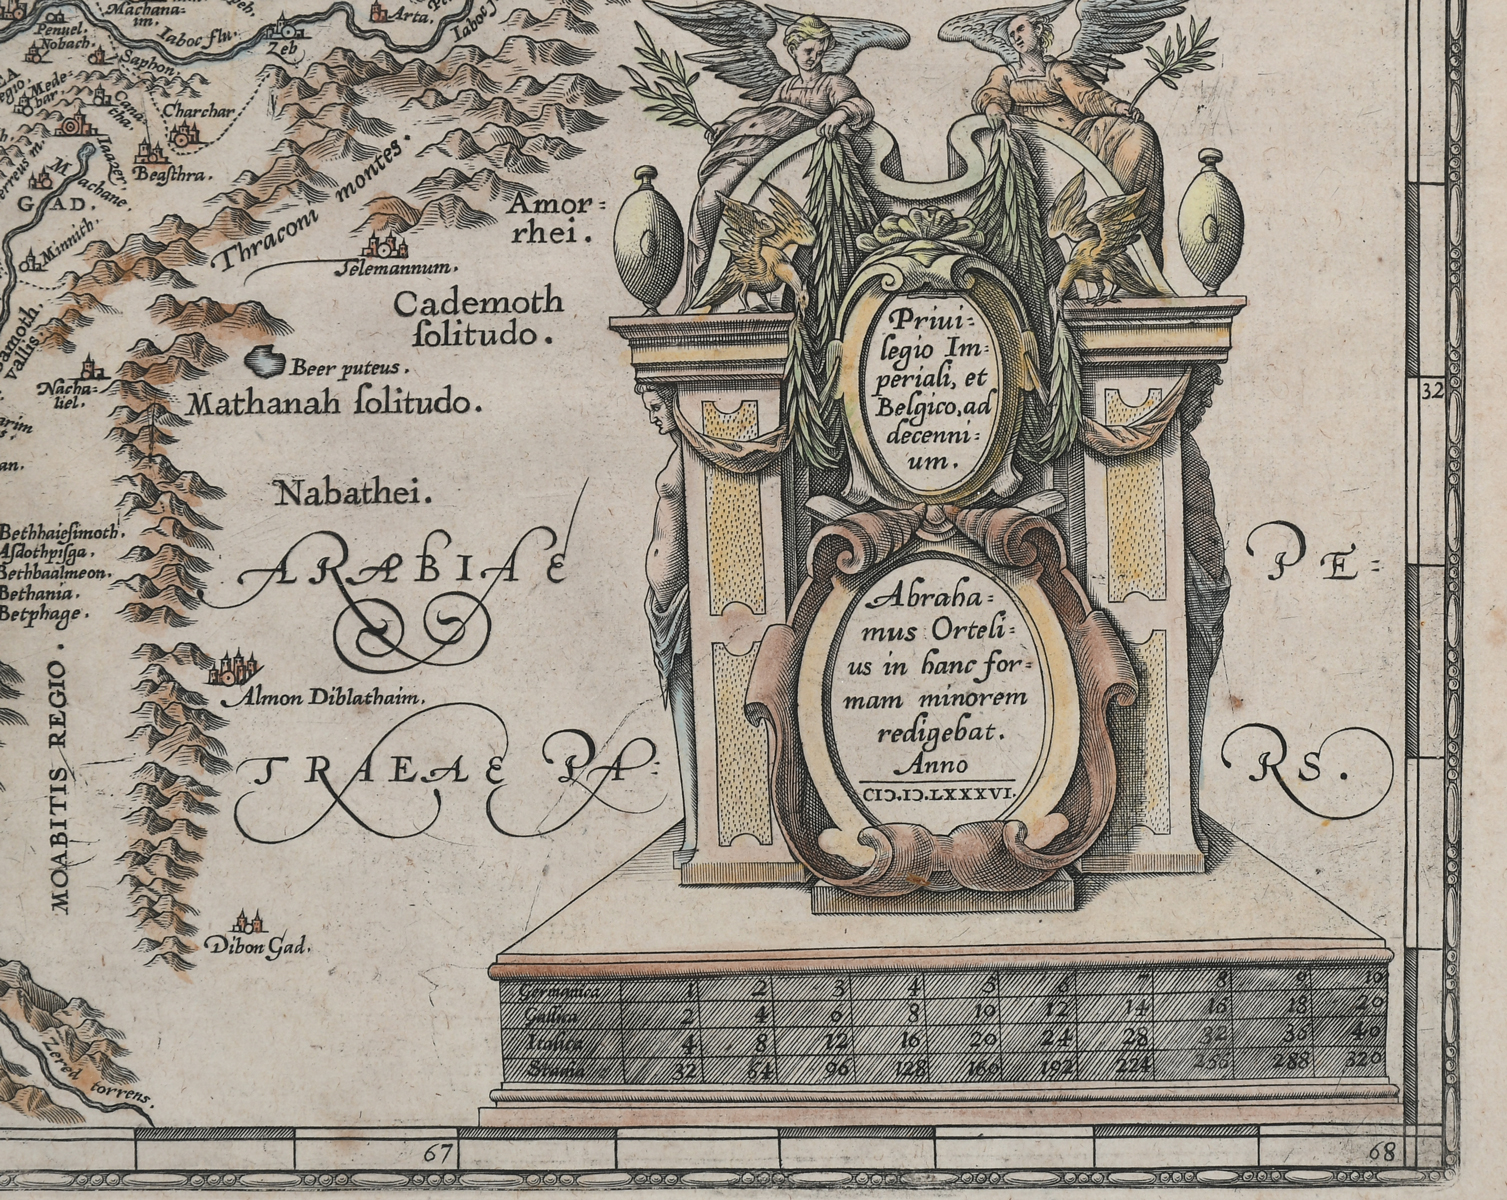 Machana=
im.
Penuel.
Nobach.
Iaboc flu.
Zeb
Arta.
Saphon.
Charchar
Beasthra.
Iaazer.
Machane.
GAD.
Minnith.
Thraconi montes.
Amor=
rhei.
Selemannum.
Cademoth
solitudo.
vallis.
Beer puteus.
Nacha=
liel.
Mathanah solitudo.
Nabathei.
Bethhaiesimoth.
Asdothpisga.
Bethbaalmeon.
Bethania.
Betphage.
ARABIAE PE=
TRAEAE PA=RS.
Almon Diblathaim.
MOABITIS REGIO.
Dibon Gad.
Zered torrens.
Priui=
legio Im=
periali, et
Belgico, ad
decenni=
um.
Abraha=
mus Orteli=
us in hanc for=
mam minorem
redigebat.
Anno
CIƆ.IƆ.LXXXVI.
Germanica 1 2 3 4 5 6 7 8 9 10
Gallica 2 4 6 8 10 12 14 16 18 20
Italica 4 8 12 16 20 24 28 32 36 40
Stadia 32 64 96 128 160 192 224 256 288 320
32
67
68